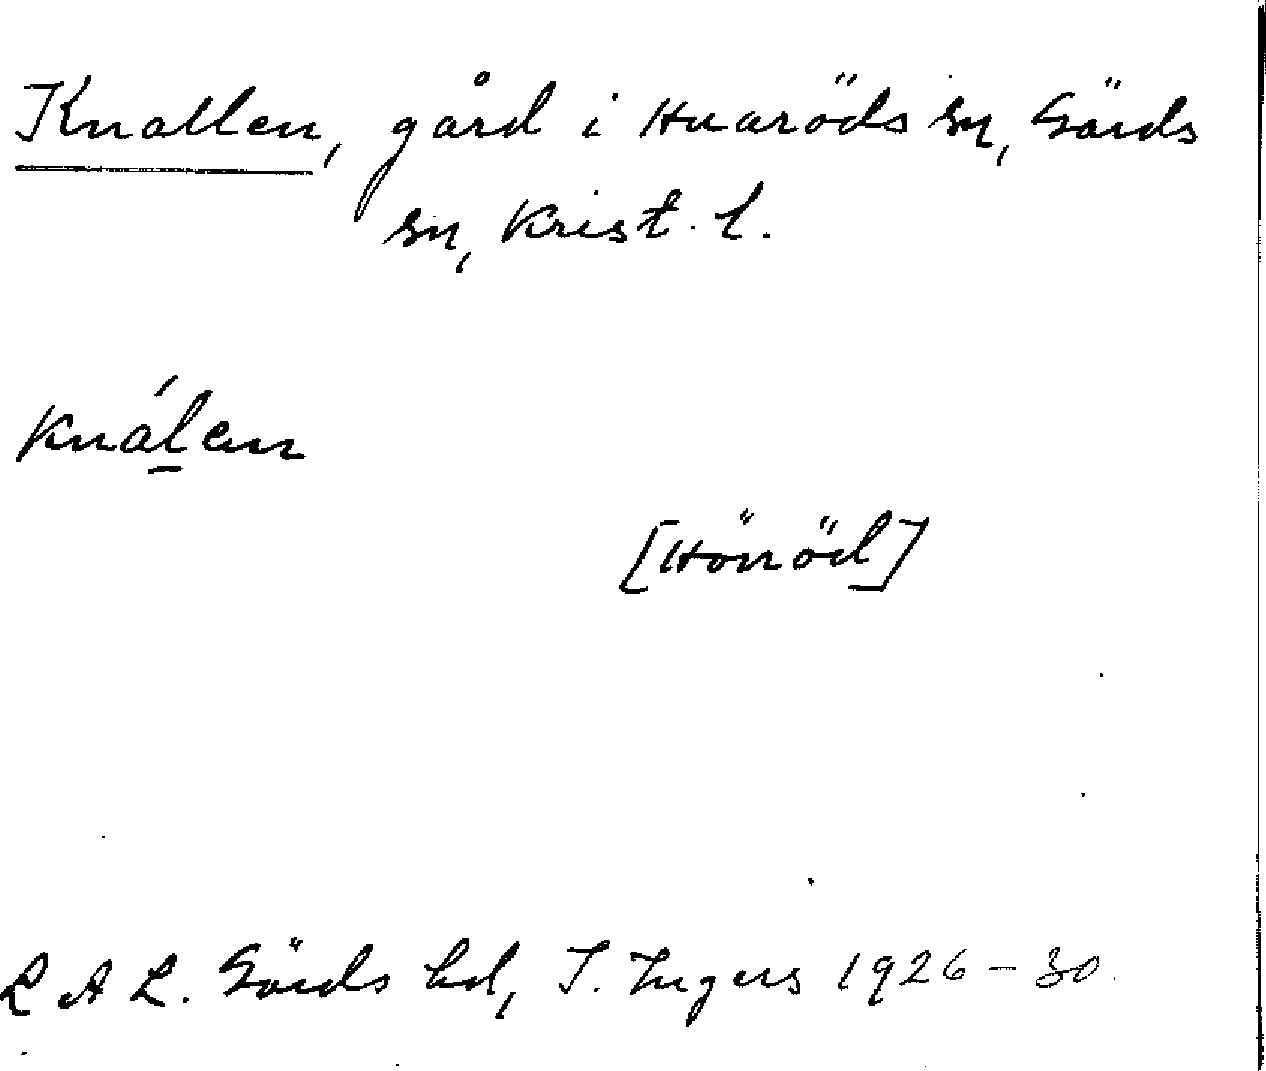 Knallen, gård i Huaröds sn, Gärds
sn, Krist. l.
knálen
[Hörröd]
L A L. Gärds hd, I. Ingers 1926-30.